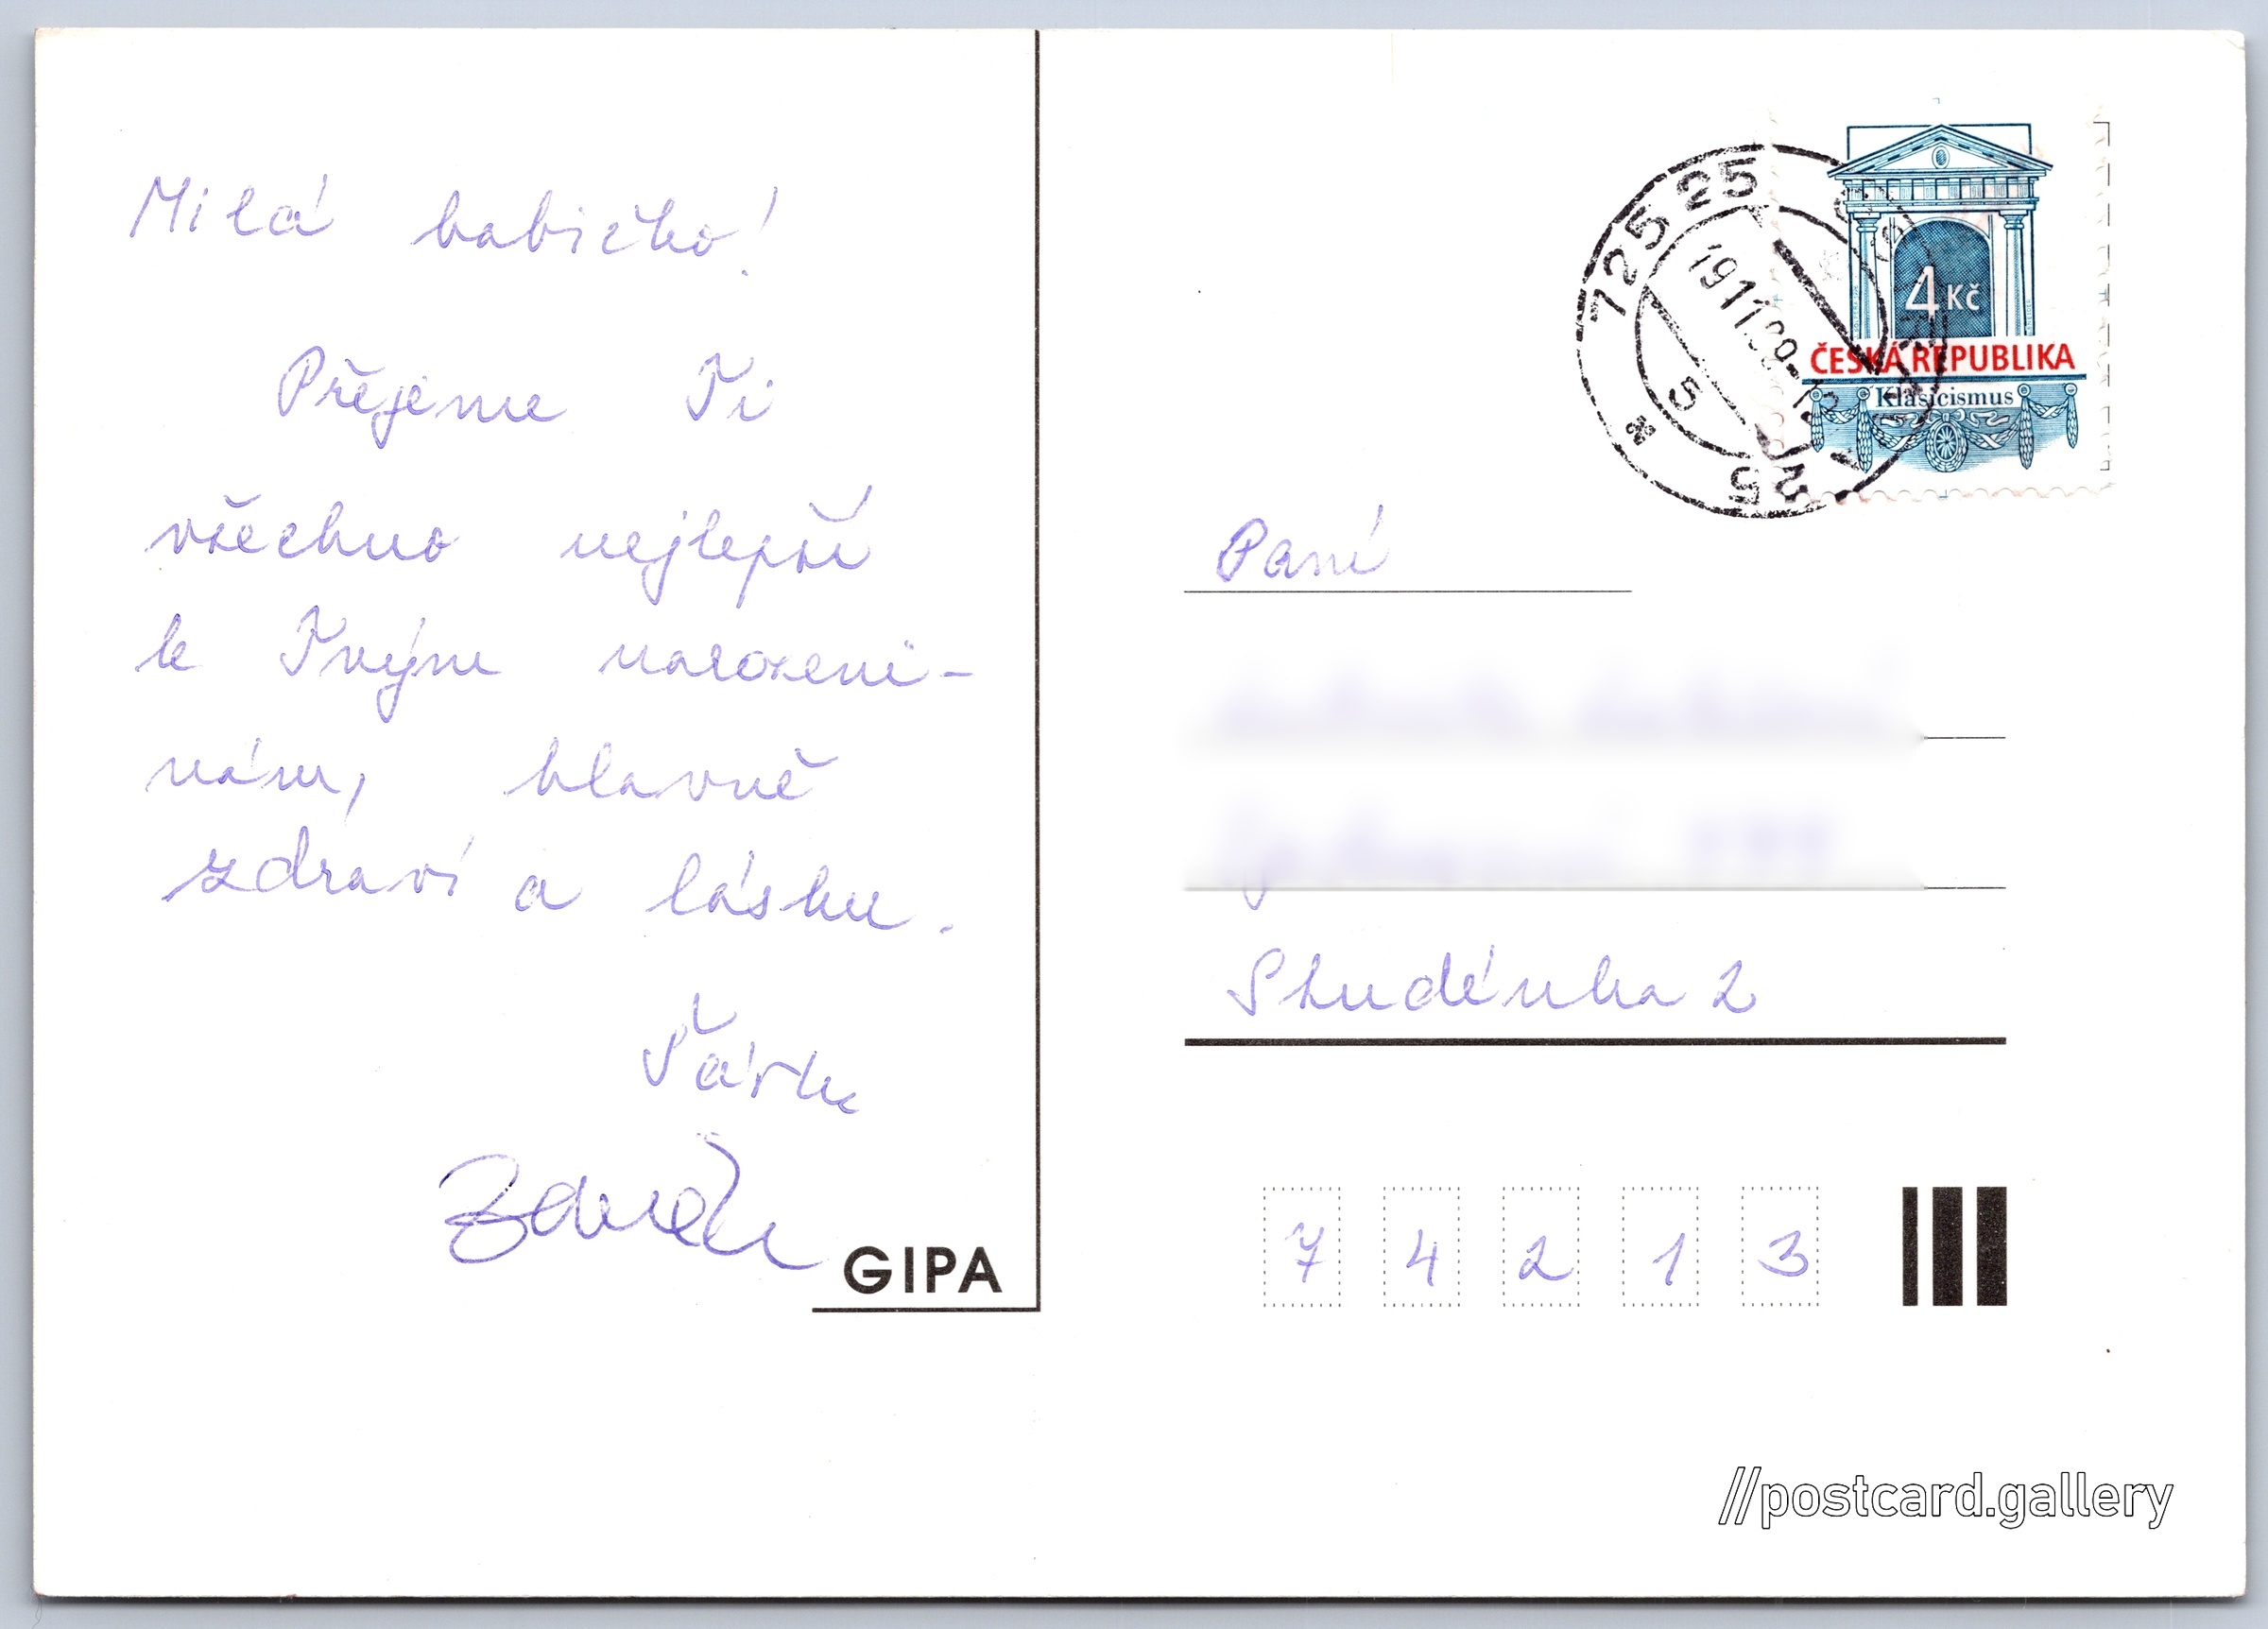 Milá babičko!
Přejeme Ti
všechno nejlepší
k Tvým narozeni-
nám, hlavně
zdraví a lásku.
Šárk
Zdeněk
GIPA
725 25
25
5
4 Kč
ČESKÁ REPUBLIKA
Klasicismus
Paní
Studénka 2
7 4 2 1 3
//postcard.gallery